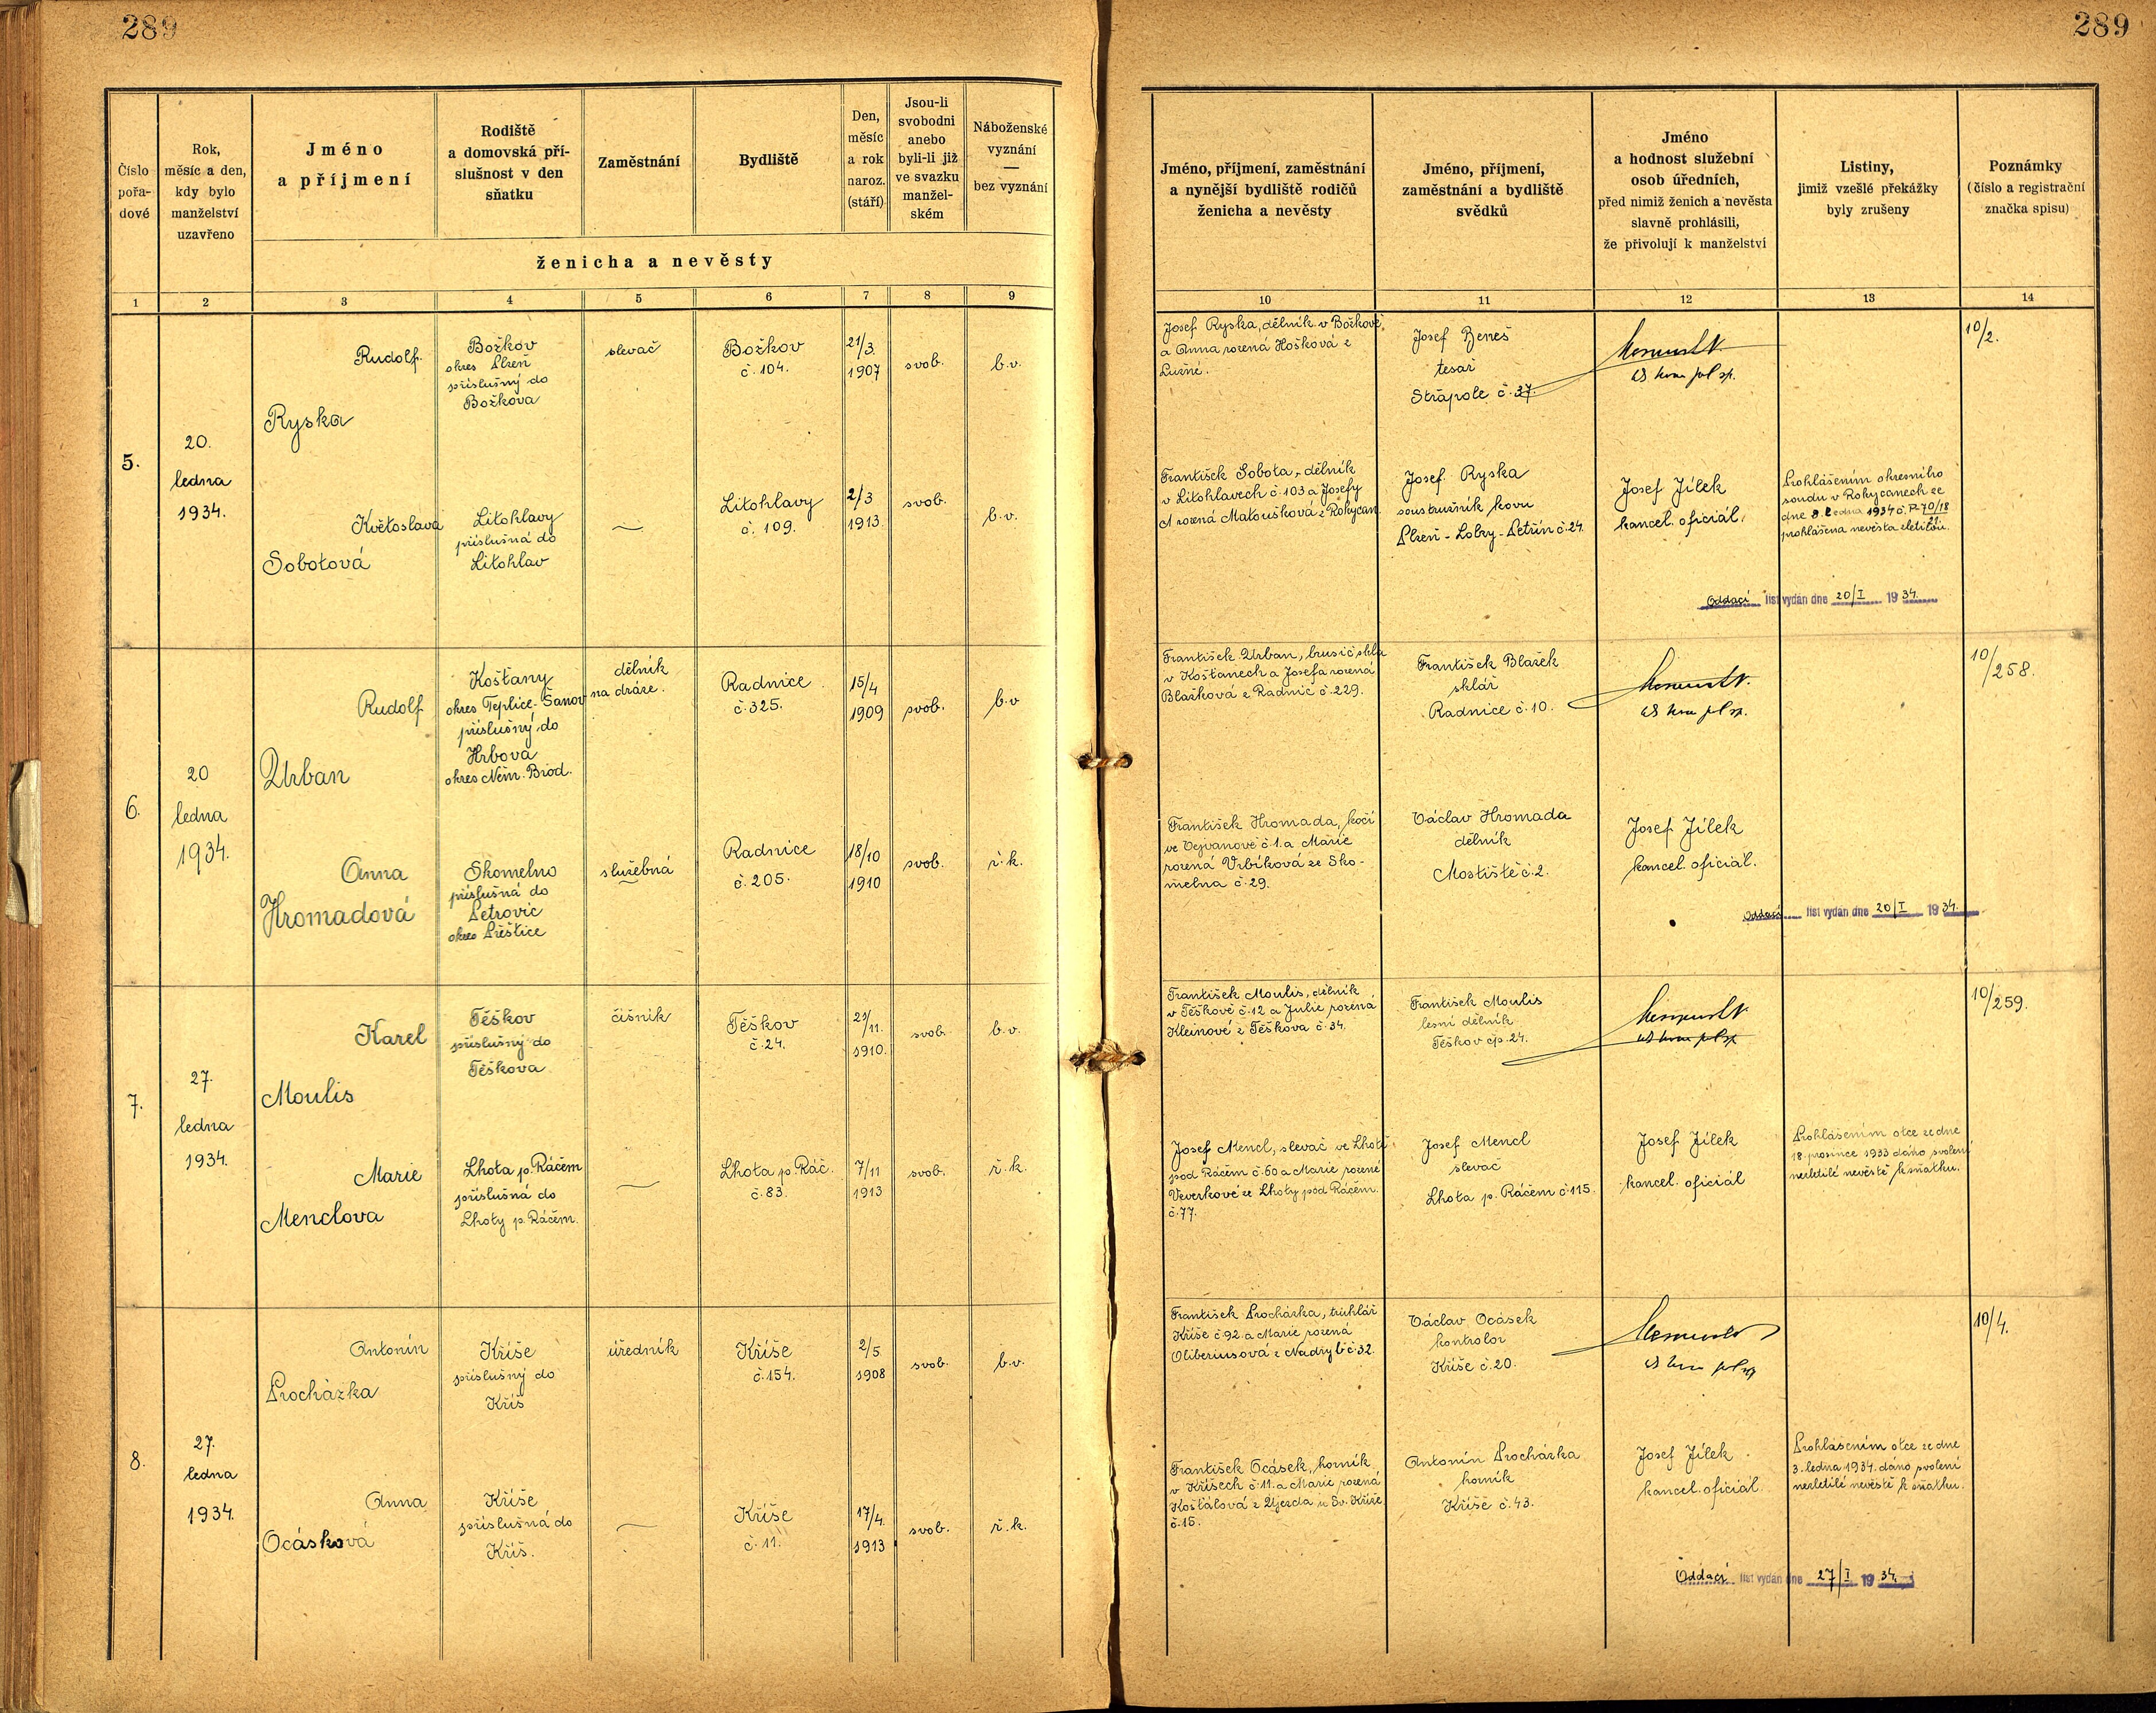 289
289
Číslo
pořa-
dové
Rok,
měsíc a den,
kdy bylo
manželství
uzavřeno
Jméno
a příjmení
Rodiště
a domovská pří-
slušnost v den
sňatku
Zaměstnání
Bydliště
Den,
měsíc
a rok
naroz.
(stáří)
Jsou-li
svobodni
anebo
byli-li již
ve svazku
manžel-
ském
Náboženské
vyznání
—
bez vyznání
ženicha a nevěsty
Jméno, příjmení, zaměstnání
a nynější bydliště rodičů
ženicha a nevěsty
Jméno, příjmení,
zaměstnání a bydliště
svědků
Jméno
a hodnost služební
osob úředních,
před nimiž ženich a nevěsta
slavně prohlásili,
že přivolují k manželství
Listiny,
jimiž vzešlé překážky
byly zrušeny
Poznámky
(číslo a registrační
značka spisu)
1 2 3 4 5 6 7 8 9 10 11 12 13 14
5.
20.
ledna
1934.
Rudolf
Ryska
Božkov
okres Plzeň
příslušný do
Božkova
slevač
Božkov
č. 104.
21/3.
1907
svob.
b.v.
Josef Ryska, dělník v Božkově,
a Anna rozená Hošková z
Lužné.
Josef Beneš
tesař
Strápole č. 37.
10/2.
Květoslava
Sobotová
Litohlavy
příslušná do
Litohlav
Litohlavy
č. 109.
2/3
1913.
svob.
b.v.
František Sobota, dělník
v Litohlavech č. 103 a Josefy
rozená Matoušková z Rokycan
Josef Ryska
soustružník kovu
Plzeň - Lobzy - Petřín č. 24.
Josef Jílek
kancel. oficiál.
Prohlášením okresního
soudu v Rokycanech ze
dne 8. ledna 1934 č. P 70/18
prohlášena nevěsta zletilou.
Oddací list vydán dne 20/I 1934.
6.
20
ledna
1934.
Rudolf
Urban
Košťany
okres Teplice-Šanov
příslušný do
Hrbova
okres Něm. Brod.
dělník
na dráze.
Radnice
č. 325.
15/4
1909
svob.
b.v
František Urban, brusič skla
v Košťanech a Josefa rozená
Blažková z Radnic č. 229.
František Blažek
sklář
Radnice č. 10.
10/258.
Anna
Hromadová
Skomelno
příslušná do
Petrovic
okres Přeštice
služebná
Radnice
č. 205.
18/10
1910
svob.
ř.k.
František Hromada, kočí
ve Vejvanově č. 1. a Marie
rozená Vrbíková ze Sko-
melna č. 29.
Václav Hromada
dělník
Mostiště č. 2.
Josef Jílek
kancel. oficiál.
Oddací list vydán dne 20/I 1934.
7.
27.
ledna
1934.
Karel
Moulis
Těškov
příslušný do
Těškova
číšník
Těškov
č. 24.
/11.
1910.
svob.
b.v.
František Moulis, dělník
v Těškově č. 12 a Julie rozená
Kleinové z Těškova č. 34.
František Moulis
lesní dělník
Těškov čp. 24.
10/259.
Marie
Menclova
Lhota p. Ráčem
příslušná do
Lhoty p. Ráčem.
Lhota p. Ráč.
č. 83.
7/11
1913
svob.
ř.k.
Josef Mencl, slevač ve Lhotě
pod Ráčem č. 60 a Marie rozené
Veverkové ze Lhoty pod Ráčem.
č. 77.
Josef Mencl
slevač
Lhota p. Ráčem č. 115.
Josef Jílek
kancel. oficiál
Prohlášením otce ze dne
18. prosince 1933 dáno svolení
nezletilé nevěstě k sňatku.
8.
27.
ledna
1934.
Antonín
Procházka
Kříše
příslušný do
Kříš
úředník
Kříše
č. 154.
2/5
1908
svob.
b.v.
František Procházka, truhlář
Kříše č. 92. a Marie rozená
Oliberiusová z Nadryb č. 32.
Václav Ocásek
kontrolor
Kříše č. 20.
10/4.
Anna
Ocásková
Kříše
příslušná do
Kříš.
Kříše
č. 11.
17/4.
1913
svob.
ř.k.
František Ocásek, horník
v Kříších č. 11. a Marie rozená
Košťálová z Újezda u Sv. Kříže
č. 15.
Antonín Procházka
horník
Kříše č. 43.
Josef Jílek
kancel. oficiál.
Prohlášením otce ze dne
3. ledna 1934. dáno svolení
nezletilé nevěstě k sňatku.
Oddací list vydán dne 27/I 1934.